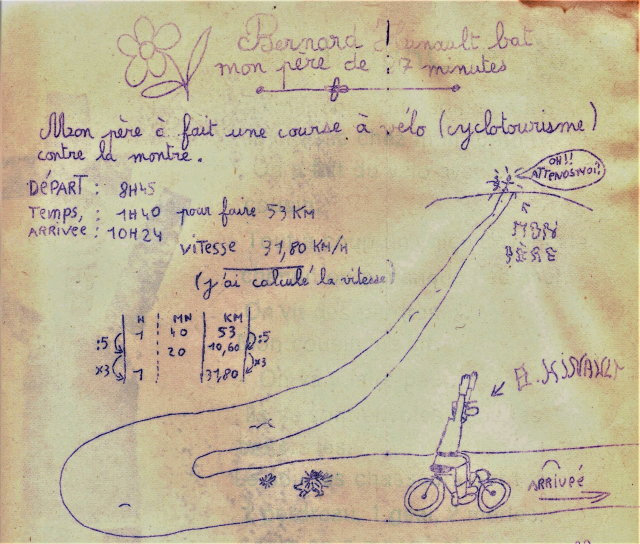 Bernard Hinault bat
mon père de 7 minutes
Mon père à fait une course à vélo (cyclotourisme)
contre la montre.
DÉPART : 8H45
Temps, : 1H40 pour faire 53 KM
ARRIVÉE : 10H24
VITESSE 31,80 KM/H
(j'ai calculé la vitesse)
OH!!
ATTENDS MOI!
MON
PÈRE
H MN KM
1 40 53
:5 20 10,60 :5
x3 1 31,80 x3
B. HINAULT
ARRIVÉE